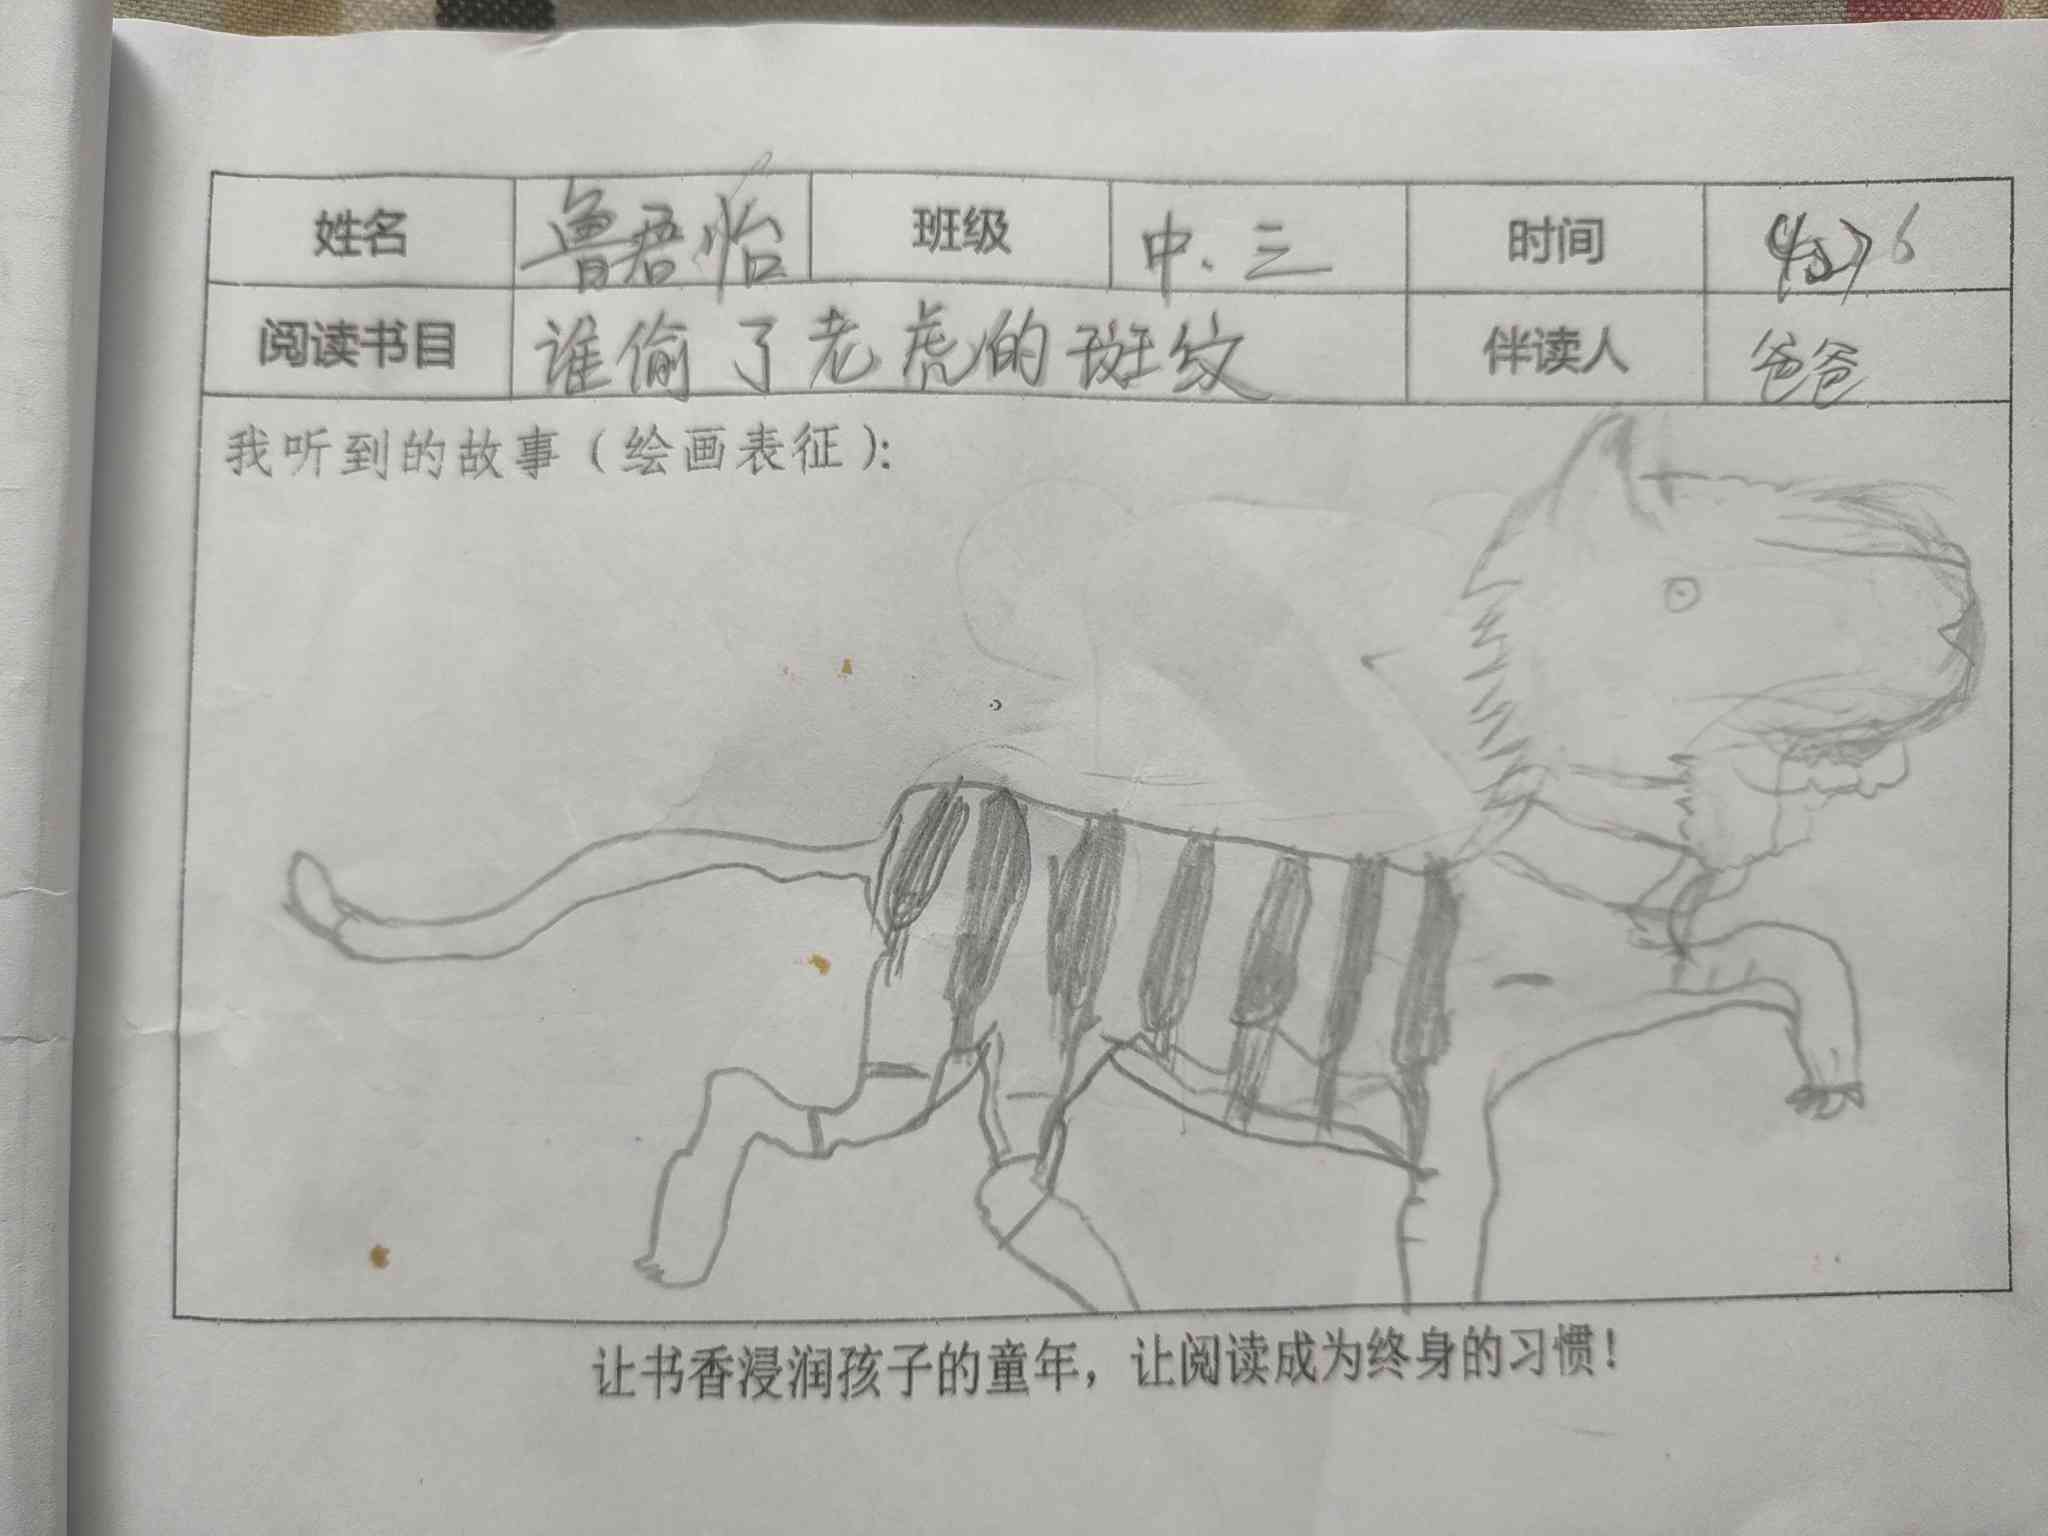 姓名 鲁君怡 班级 中.三 时间
阅读书目 谁偷了老虎的斑纹 伴读人 爸爸
我听到的故事（绘画表征）：
让书香浸润孩子的童年，让阅读成为终身的习惯！